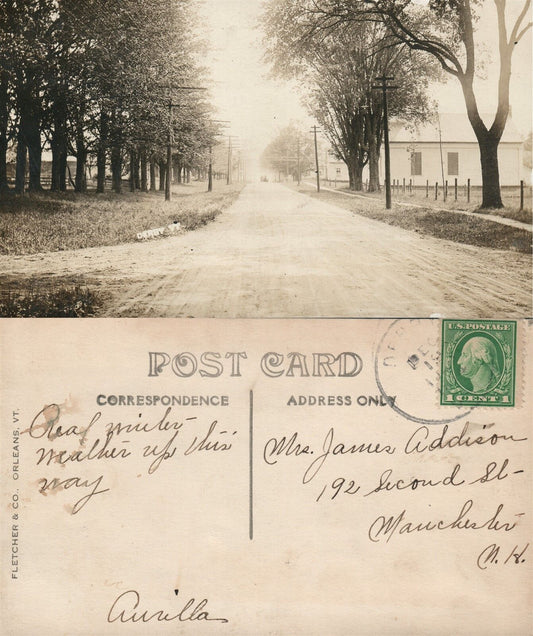 U.S. POSTAGE
1 CENT 1
DEC
POST CARD
CORRESPONDENCE
ADDRESS ONLY
Real winter
weather up this
way
Aurilla
Mrs. James Addison
192 Second St-
Manchester
N.H.
FLETCHER & CO., ORLEANS, VT.